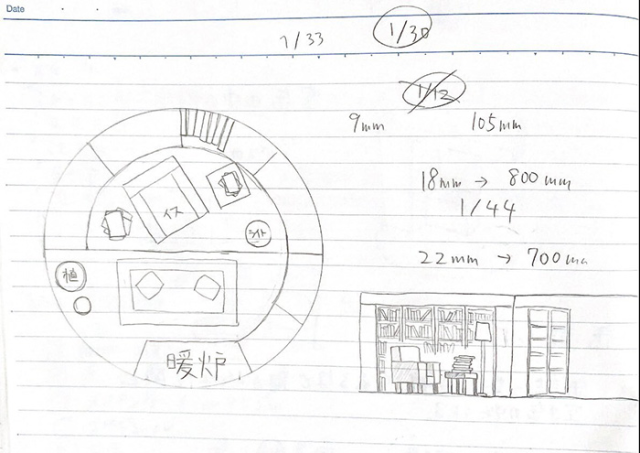 Date
1/33 1/30
1/12
9mm 105mm
18mm → 800mm
1/44
22mm → 700mm
イス
ライト
植
暖炉